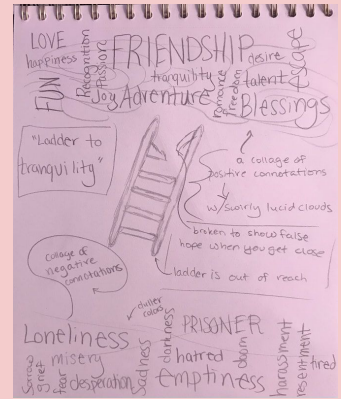 LOVE
happiness
FUN
Recognition
Passion
Joy
FRIENDSHIP
tranquility
Adventure
desire
talent
romance
freedom
escape
Blessings
"Ladder to
tranquility"
a collage of
positive connotations
w/swirly lucid clouds
broken to show false
hope when you get close
ladder is out of reach
collage of
negative
connotations
duller
colors
Loneliness
misery
grief
fear
desperation
sadness
darkness
PRISONER
hatred
emptiness
doom
harassment
resentment
tired